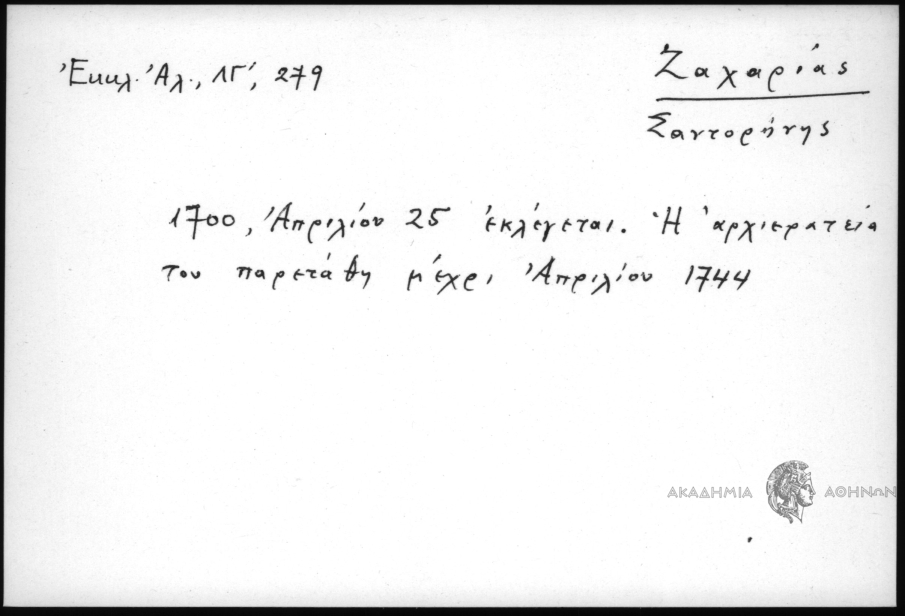 Ἐκκλ. Ἀλ., ΛΓ', 279
Ζαχαρίας
Σαντορήνης
1700, Ἀπριλίου 25 ἐκλέγεται. Ἡ ἀρχιερατεία
του παρετάθη μέχρι Ἀπριλίου 1744
ΑΚΑΔΗΜΙΑ ΑΘΗΝΩΝ